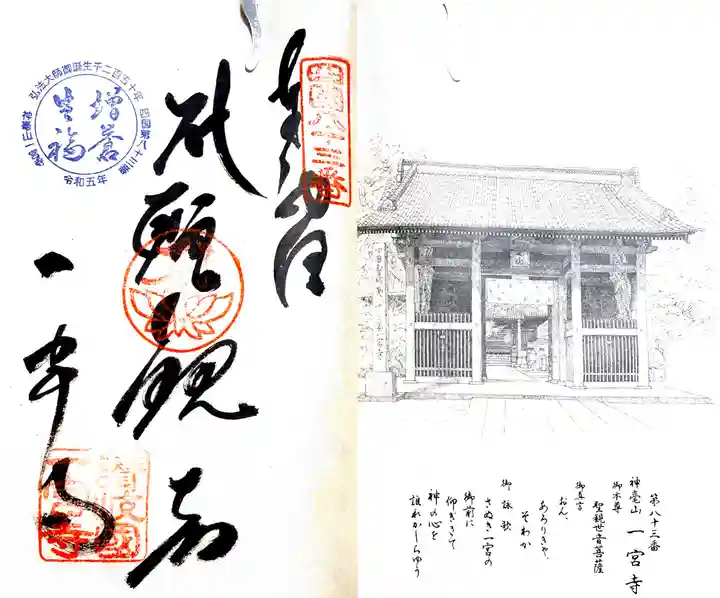 四国八十三番
奉納
聖観音
一宮寺
弘法大師御誕生千二百五十年
四国第八十三番
令和五年
讃岐國
一宮寺
第八十三番
神毫山 一宮寺
御本尊
聖観世音菩薩
御真言
おん、
あろりきゃ、
そわか
御詠歌
さぬき一宮の
御前に
仰ぎきて
神の心を
誰れかしらゆう